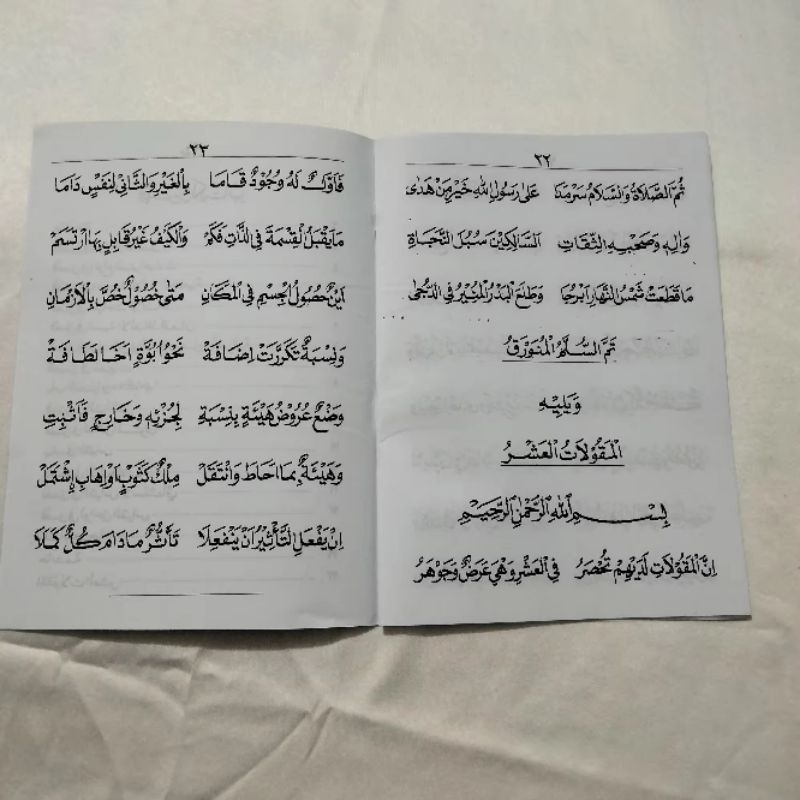 ٢٢
ثُمَّ الصَّلَاةُ وَالسَّلَامُ سَرْمَدَا عَلَى رَسُولِ اللهِ خَيْرِ مَنْ هَدَى
وَاٰلِهِ وَصَحْبِهِ الثِّقَاتِ السَّالِكِيْنَ سُبُلَ النَّجَاةِ
مَا قَطَعَتْ شَمْسُ النَّهَارِ اَبْرُجَا وَطَلَعَ الْبَدْرُ الْمُنِيْرُ فِي الدُّجَى
تَمَّ السُّلَّمُ الْمُنَوْرَقُ
وَيَلِيْهِ
الْمَقُوْلَاتُ الْعَشْرُ
بِسْمِ اللهِ الرَّحْمٰنِ الرَّحِيْمِ
اِنَّ الْمَقُوْلَاتِ لَدَيْهِمْ تُحْصَرُ فِي الْعَشْرِ وَهْيَ عَرَضٌ وَجَوْهَرُ
٢٣
فَاَوَّلٌ لَهُ وُجُوْدٌ قَامَا بِالْغَيْرِ وَالثَّانِيْ لِنَفْسٍ دَامَا
مَا يَقْبَلُ الْقِسْمَةَ فِي الذَّاتِ فَكَمْ وَالْكَيْفُ غَيْرُ قَابِلٍ بِهَا ارْتَسَمْ
اَيْنٌ حُصُوْلُ الْجِسْمِ فِي الْمَكَانِ مَتَى حُصُوْلٌ خُصَّ بِالْاَزْمَانِ
وَنِسْبَةٌ تَكَرَّرَتْ اِضَافَةْ نَحْوُ اُبُوَّةٍ اَخَا لَطَافَةْ
وَضْعٌ عُرُوْضُ هَيْئَةٍ بِنِسْبَةِ لِجُزْئِهِ وَخَارِجٍ فَاَثْبِتِ
وَهَيْئَةٌ بِمَا اَحَاطَ وَانْتَقَلْ مِلْكٌ كَثَوْبٍ اَوْ اِهَابٍ اِشْتَمَلْ
اِنْ يَفْعَلِ التَّأْثِيْرُ اَنْ يَنْفَعِلَا تَأَثُّرٌ مَا دَامَ كُلٌّ كَمَلَا